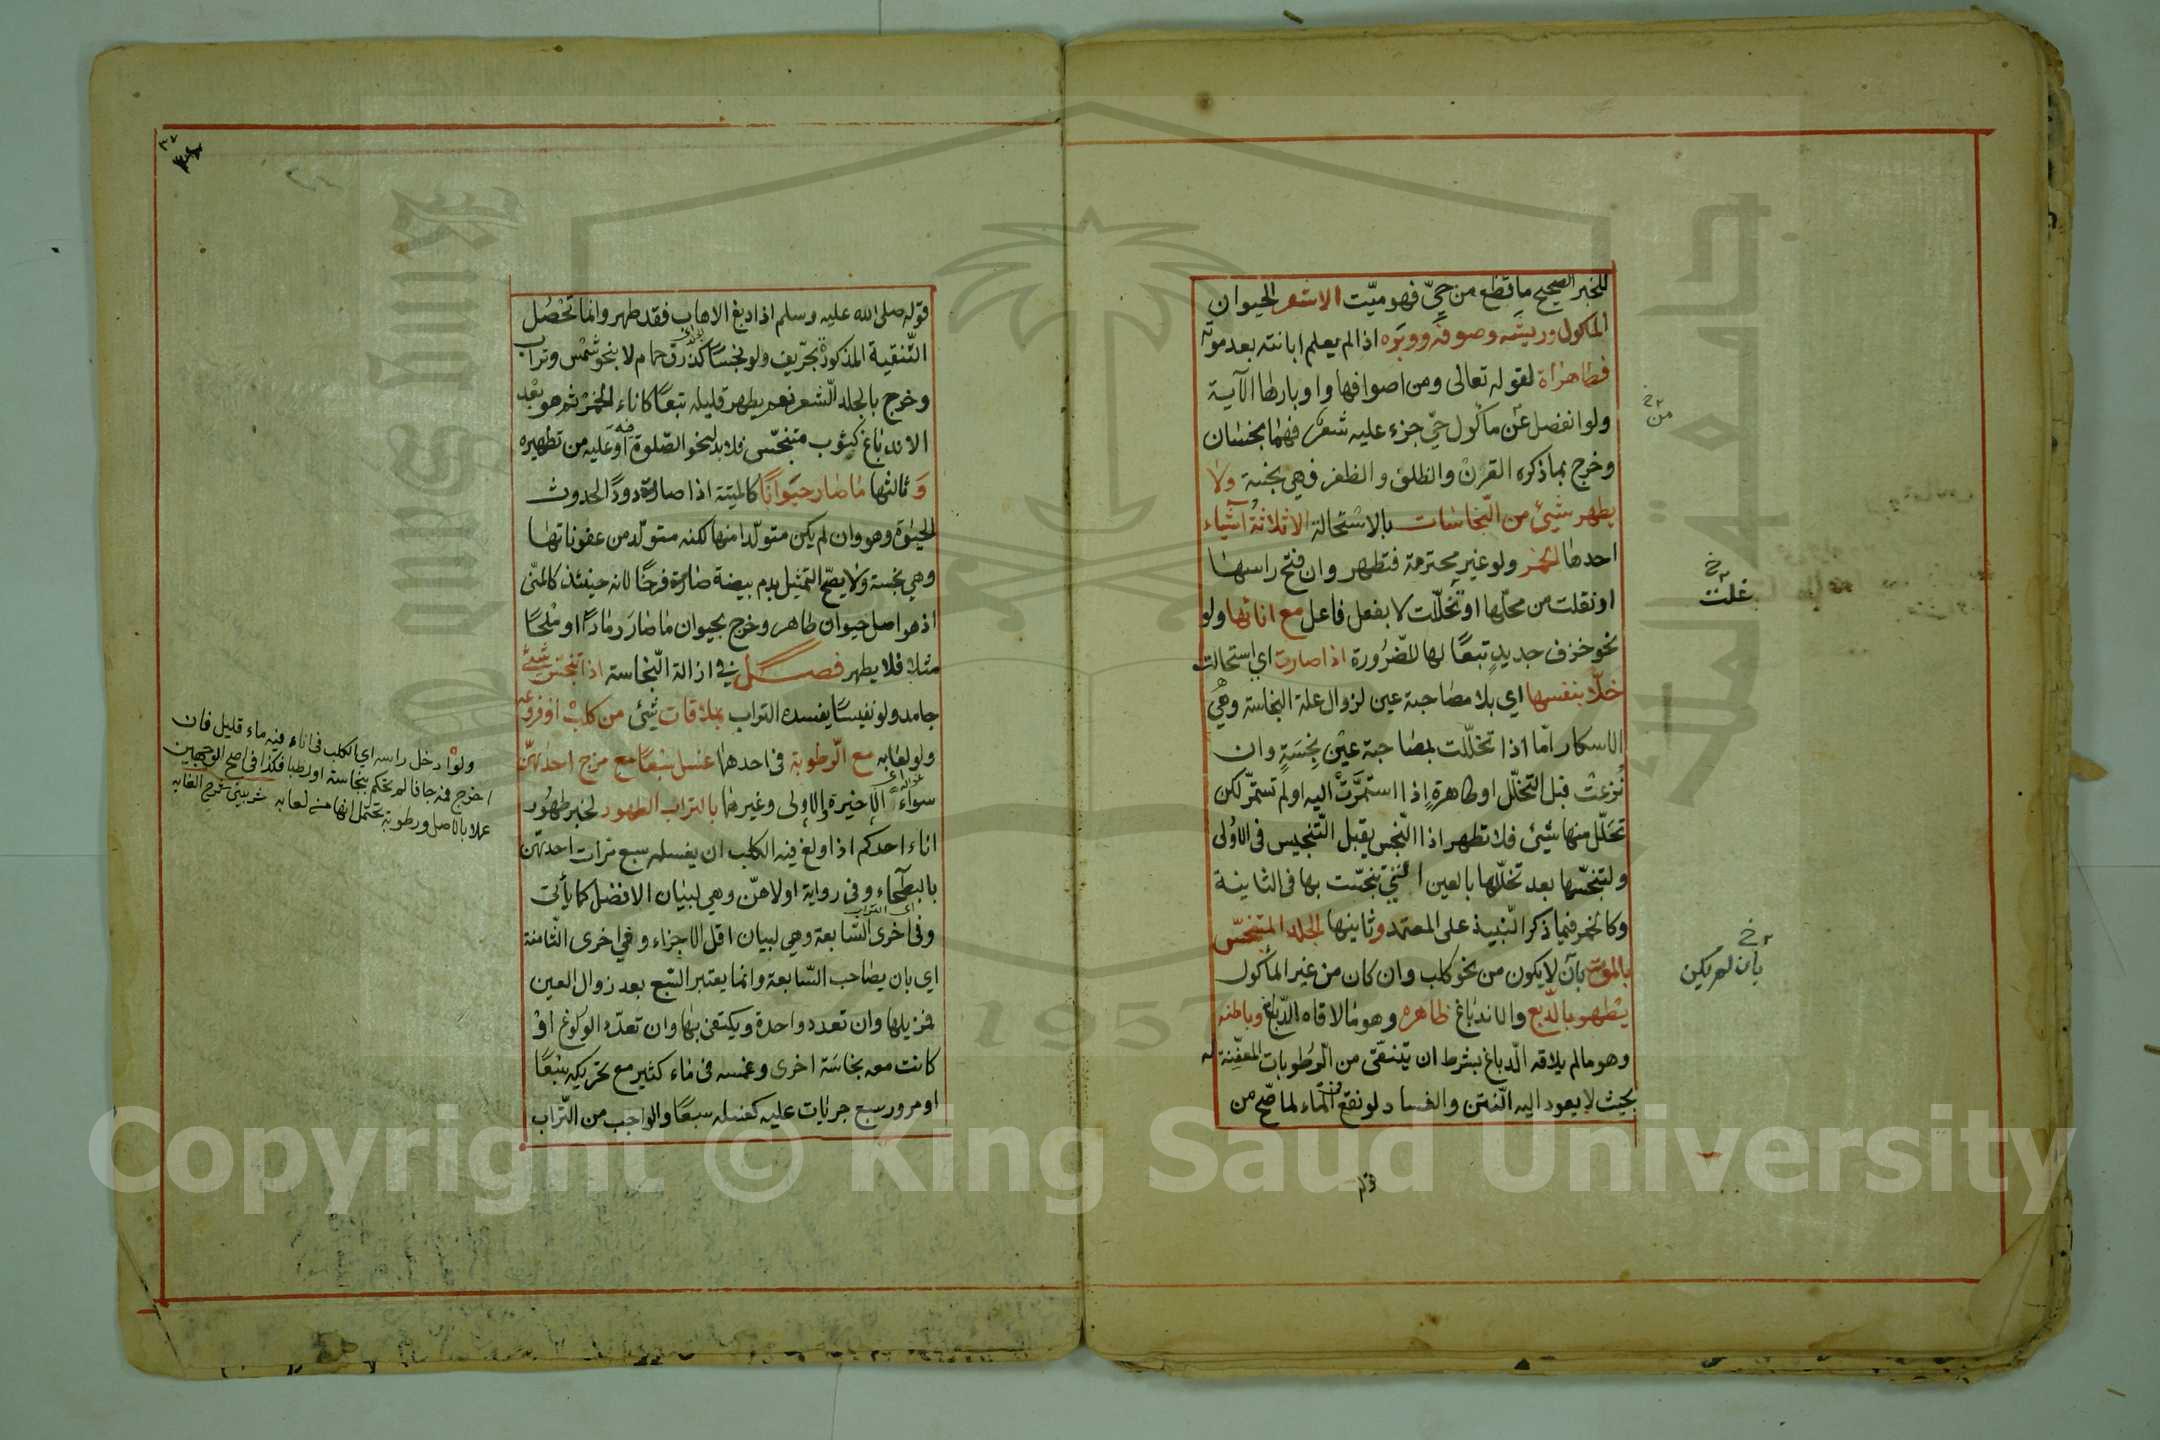 للخبر الصحيح ما قطع من حيّ فهو ميّت الا شعر الحيوان
المأكول وريشه وصوفه ووبره اذا لم يعلم ابانته بعد موته
فطاهرة لقوله تعالى ومن اصوافها واوبارها الآية
ولو انفصل عن مأكول حيّ جزء عليه شعر فهما نجسان
وخرج بما ذكره القرن والظلف والظفر فهي نجسة ولا
يطهر شيئ من النّجاسات بالاستحالة الا ثلاثة اشياء
احدها الخمر ولو غير محترمة فتطهر وان فتح راسها
او نقلت من محلّها او تخلّلت لا بفعل فاعل مع انائها ولو
نحو خزف جديدٍ تبعًا لها للضّرورة اذا صارت اي استحالت
خلّا بنفسها اي بلا مصاحبة عين لزوال علة النجاسة وهي
الاسكار امّا اذا تخلّلت بمصاحبة عين نجسةٍ وان
نزعت قبل التخلّل او طاهرةٍ اذا استمرّت اليه او لم تستمرّ لكن
تخلّل منها شيئ فلا تطهر اذ النّجس يقبل التّنجيس في الاولى
ولتنجّسها بعد تخلّلها بالعين الّتي تنجّست بها في الثانية
وكالخمر فيما ذكر النّبيذ على المعتمد وثانيها الجلد المتنجّس
بالموت بأن لا يكون من نحو كلب وان كان من غير المأكول
يطهر بالدّبغ والاندباغ ظاهره وهو ما لاقاه الدّباغ وباطنه
وهو ما لم يلاقه الدباغ بشرط ان يتنقّى من الرّطوبات المعفّنة له
بحيث لا يعود اليه النّتن والفساد لو نقع في الماء لما صحّ من
من
نخ
علت
نخ
بان لم يكن
نخ
قوله
٣٧
قوله صلى الله عليه وسلم اذا دبغ الاهاب فقد طهر وانما تحصل
التّنقية المذكورة بحرّيف ولو نجسًا كذرق حمام لا بنحو شمس وتراب
وخرج بالجلد الشعر نعم يطهر قليله تبعًا كاناء الخمر ثم هو بعد
الاندباغ كثوب متنجّس فلا بد لنحو الصّلوة او عليه من تطهيره
وثالثها ما صار حيوانًا كالميتة اذا صارت دودًا لحدوث
الحيوة وهو وان لم يكن متولّدا منها لكنه متولّد من عفوناتها
وهي نجسة ولا يصحّ التمثيل بدم بيضة صارت فرخًا لانه حينئذ كالمنّي
اذ هو اصل حيوان طاهر وخرج بحيوان ما صار رمادًا او ملحًا
مثلا فلا يطهر فصل في ازالة النّجاسة اذا تنجّس شيئ
جامد ولو نفيسًا يفسده التراب بملاقات شيئ من كلب او فروعه
ولو لعابه مع الرّطوبة في احدهما غسل سبعًا مع مزج احداهنّ
سواء الاخيرة والاولى وغيرهما بالتراب الطهور لخبر طهور
اناء احدكم اذا ولغ فيه الكلب ان يغسله سبع مرات احداهنّ
بالبطحاء وفي رواية اولاهنّ وهي لبيان الافضل كما يأتي
وفي اخرى السّابعة وهي لبيان اقل الاجزاء وفي اخرى الثّامنة
اي التراب
اي بان يصاحب السّابعة وانما يعتبر السّبع بعد زوال العين
فمزيلها وان تعدد واحدة ويكتفى بها وان تعدّد الولوغ او
كانت معه نجاسة اخرى وغمسه في ماء كثير مع تحريكه سبعًا
او مرور سبع جريات عليه كغسله سبعًا والواجب من التّراب
ولو ادخل راسه اي الكلب في اناء فيه ماء قليل فان
اخرج فمه جافا لم يحكم بنجاسة او رطبا فكذا في اصح الوجهين
عملا بالاصل ورطوبته يحتمل انها من لعابه
Copyright © King Saud University
1957